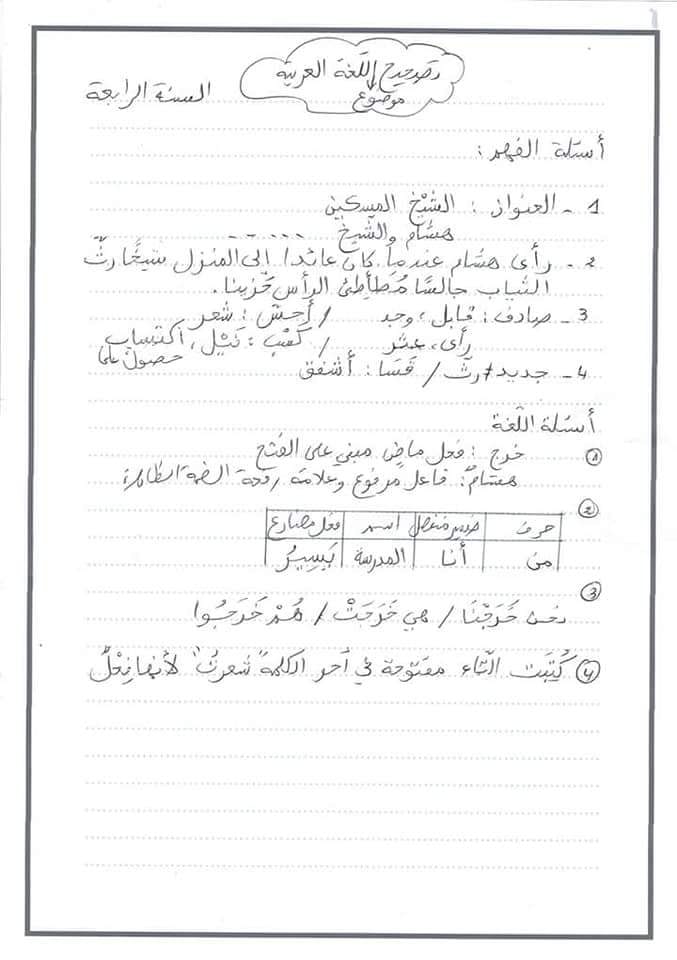 تصحيح اللّغة العربية
موضوع
السنة الرابعة
أسئلة الفهم :
1 - العنوان : الشيْخ المسكين
هشام والشيخ .....
2 - رأى هشام عندما كان عائدا إلى المنزل شيخًا رثّ
الثياب جالسًا مُطَأطِئ الرأس حَزينا.
3 - صادف : قابل ، وجد / أحسّ : شعر
رأى ، عثر / كَسْب : نَيْل ، اكتساب
حصول على
4 - جديد ≠ رثّ / قَسَا : أشفق
أسئلة اللّغة
1 خرج : فعل ماضٍ مبني على الفتح
هشامٌ : فاعل مرفوع وعلامة رفعه الضمة الظاهرة
2
حرف | ضمير منفصل | اسم | فعل مضارع
من | أنا | المدرسة | يَسِيرُ
3
نحن خَرَجْنَا / هي خَرَجَتْ / هُمْ خَرَجُوا
4 كُتِبَت التّاء مفتوحة في آخر الكلمة "شعرتُ" لأنها فِعْلٌ